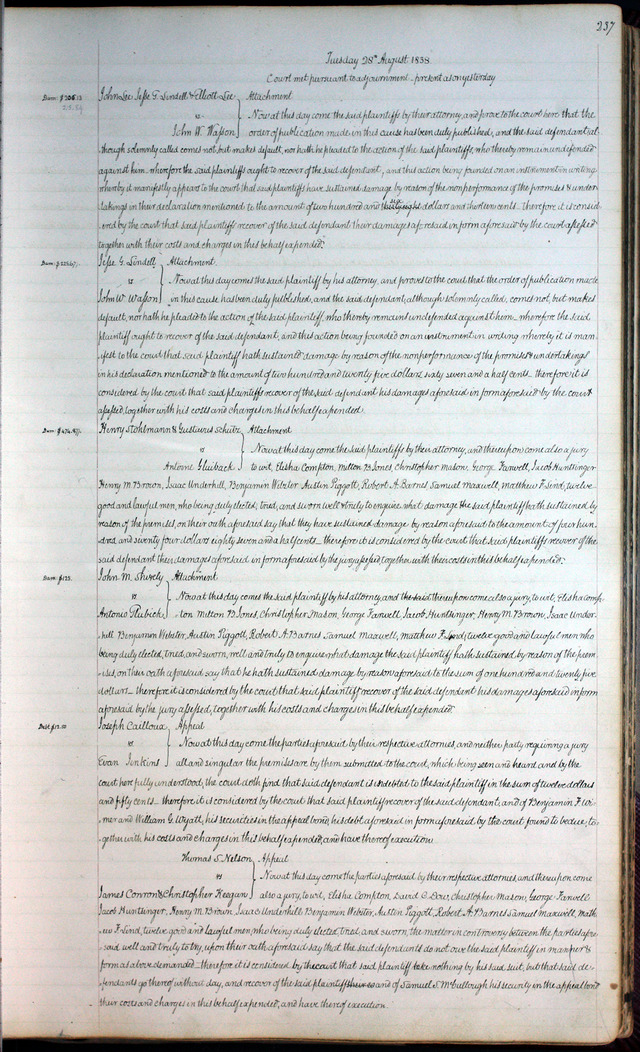 237
Tuesday 28th August 1838.
Court met pursuant to adjournment - present as on yesterday
Dam: $ John Lee Jesse G. Lindell & Elliott Lee } Attachment
vs Now at this day come the said plaintiffs by their attorney, and prove to the court here that the
John W. Wasson order of publication made in this cause has been duly published, and the said defendant al-
-though solemnly called comes not but makes default, nor hath he pleaded to the action of the said plaintiffs, who thereby remain undefended
against him - wherefore the said plaintiffs ought to recover of the said defendant, and this action being founded on an instrument in writing
whereby it manifestly appears to the court that said plaintiffs have sustained damage by reason of the nonperformance of the promises & under-
-takings in their declaration mentioned to the amount of two hundred and dollars and thirteen cents - therefore it is consid-
-ered by the court that said plaintiffs recover of the said defendant their damages aforesaid in form aforesaid by the court assessed
together with their costs and charges in this behalf expended.
Dam: $225.67½. Jesse G. Lindell } Attachment
vs Now at this day comes the said plaintiff by his attorney, and proves to the court that the order of publication made
John W. Wasson in this cause has been duly published, and the said defendant, although solemnly called, comes not, but makes
default, nor hath he pleaded to the action of the said plaintiff, who thereby remains undefended against him - wherefore the said
plaintiff ought to recover of the said defendant, and this action being founded on an instrument in writing whereby it is man-
-ifest to the court that said plaintiff hath sustained damage by reason of the nonperformance of the promises & undertakings
in his declaration mentioned to the amount of two hundred and twenty five dollars sixty seven and a half cents - therefore it is
considered by the court that said plaintiff recover of the said defendant his damages aforesaid in form aforesaid by the court
assessed, together with his costs and charges in this behalf expended.
Dam: $474.87½. Henry Stohlmann & Gustavus Schutz } Attachment
vs Now at this day come the said plaintiffs by their attorney, and thereupon come also a jury
Antoine to wit, Elisha Compton, Milton B Jones, Christopher Mason, George Farwell, Jacob Huntlinger
Henry M. Brown, Isaac Underhill, Benjamin Webster Austin Piggott, Robert A. Barns Samuel Maxwell, Matthew F. Lind, twelve
good and lawful men, who being duly elected, tried, and sworn well & truly to enquire what damage the said plaintiffs hath sustained by
reason of the premises, on their oath aforesaid say that they have sustained damage by reason aforesaid to the amount of four hun-
-dred and seventy four dollars eighty seven and a half cents - therefore it is considered by the court that said plaintiffs recover of the
said defendant their damages aforesaid in form aforesaid by the jury assessed together with their costs in this behalf expended.
Dam: $125. John M. Shively } Attachment
vs Now at this day comes the said plaintiff by his attorney, and the said thereupon come also a jury, to wit, Elisha Comp-
Antonio Rubick -ton Milton B. Jones, Christopher Mason, George Farwell, Jacob Huntlinger, Henry M. Brown, Isaac Under-
-hill Benjamin Webster, Austin Piggott, Robert A. Barnes Samuel Maxwell, Matthew F. Lind, twelve good and lawful men who
being duly elected, tried, and sworn, well and truly to enquire what damage the said plaintiff hath sustained by reason of the prem-
-ises, on their oath aforesaid say that he hath sustained damage by reason aforesaid to the sum of one hundred and twenty five
dollars - therefore it is considered by the court that said plaintiff recover of the said defendant his damages aforesaid in form
aforesaid by the jury assessed, together with his costs and charges in this behalf expended.
Debt Joseph Cailloux } Appeal
vs Now at this day come the parties aforesaid by their respective attornies, and neither party requiring a jury
Evan Jenkins all and singular the premises are by them submitted to the court, which being seen and heard, and by the
court here fully understood, the court doth find that said defendant is indebted to the said plaintiff in the sum of twelve dollars
and fifty cents - therefore it is considered by the court that said plaintiff recover of the said defendant, and of Benjamin F. Wi-
-mer and William G. Wyatt, his securities in the appeal bond, his debt aforesaid in form aforesaid by the court found to be due, to-
-gether with his costs and charges in this behalf expended, and have thereof execution.
Thomas S. Nelson } Appeal
vs Now at this day come the parties aforesaid by their respective attornies, and thereupon come
James Conron & Christopher Keegan also a jury, to wit, Elisha Compton, David C. Dow, Christopher Mason, George Farwell
Jacob Huntlinger, Henry M. Brown, Isaac Underhill Benjamin Webster, Austin Piggott, Robert A. Barnes Samuel Maxwell, Math-
-ew F. Lind, twelve good and lawful men, who being duly elected, tried, and sworn, the matter in controversy between the parties afore-
-said well and truly to try, upon their oath aforesaid say that the said defendants do not owe the said plaintiff in manner &
form as above demanded - therefore it is considered by the court that said plaintiff take nothing by his said suit, but that said de-
-fendants go thereof without day, and recover of the said plaintiff and of Samuel S. McCullough his security in the appeal bond
their costs and charges in this behalf expended, and have thereof execution.